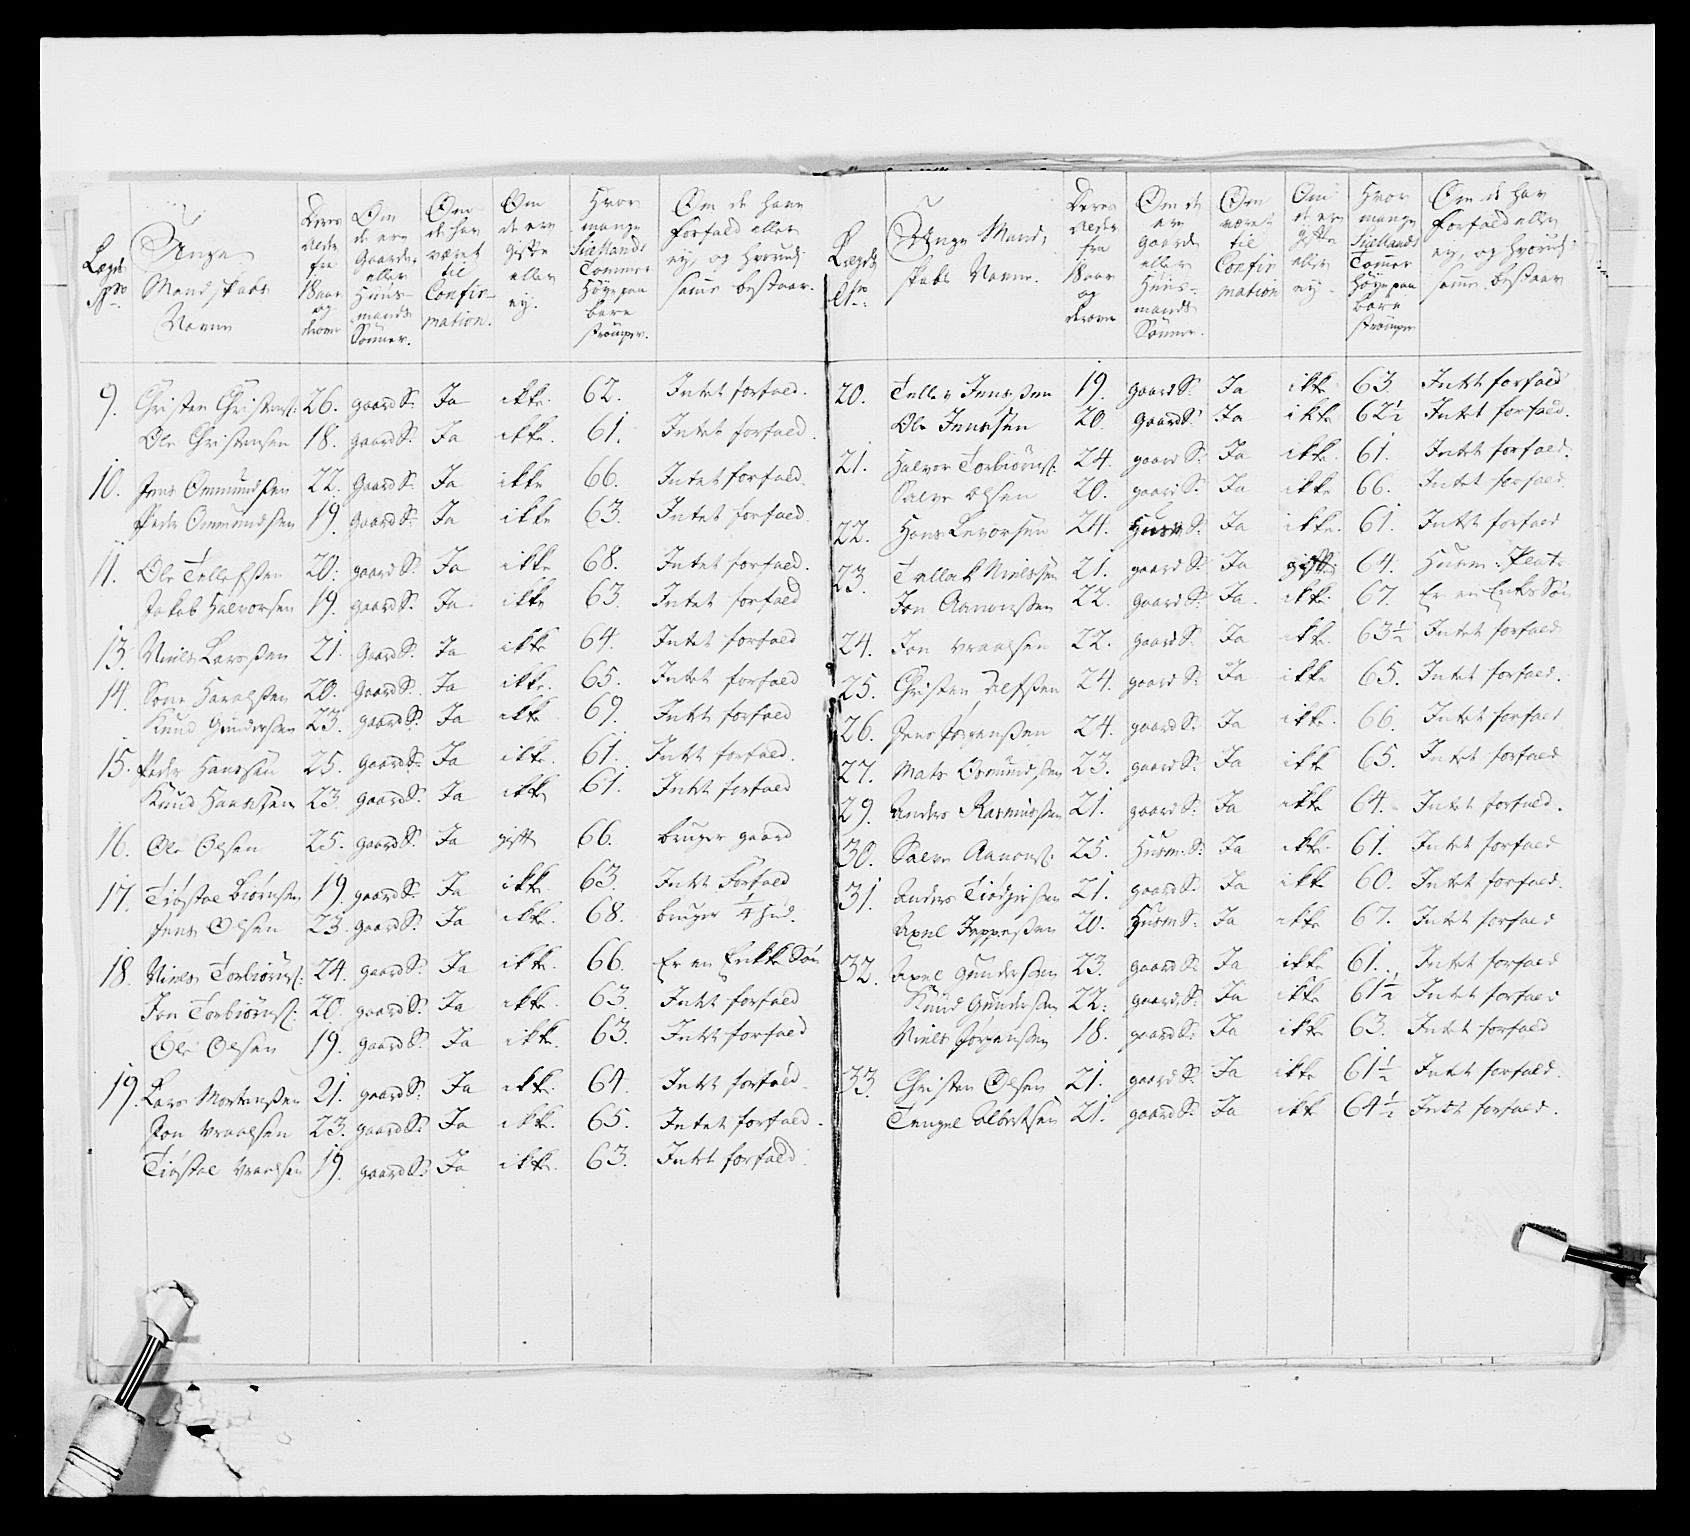 Lægds No
Unge Mandskabs Navne
Deres Alder fra 18 aar og derover
Om de ere Gaard- eller Huus-mands Sønner.
Om de har været til Confir-mation.
Om de ere gifte eller ej.
Hvor mange Siellands Tommer Høye paa bare Strömper.
Om de have Forfald eller ej, og hvorudi samme bestaar.
9. Christen Christens: 26. gaard S: Ja ikke. 62. Intet forfald.
Ole Christensen 18. gaard S: Ja ikke. 61. Intet forfald.
10. Jens Ommundsen 22. Gaard S: Ja ikke 66. Intet forfald.
Peder Ommundsen 19. Gaard S: Ja ikke 63. Intet forfald.
11. Ole Tellefssen 20. gaard S: Ja ikke 68. Intet forfald.
Jakob Halvorsen 19. gaard S: Ja ikke 63. Intet forfald
13. Niels Larssen 21. Gaard S: Ja ikke 64. Intet forfald
14. Haraldsen 20. Gaard S: Ja ikke. 65. Intet forfald
Knud Gundersen 23. gaard S: Ja ikke 69. Intet forfald
15. Peder Hanssen 25. gaard S: Ja ikke. 61. Intet forfald.
Knud Hanssen 23. gaard S: Ja ikke 61. Intet forfald
16. Ole Olsen 25. gaard S: Ja gift 66. bruger gaard
17. Tiøstol Biørnsen 19. gaard S: Ja ikke. 63. Intet Forfald
Jens Olsen 23. gaard S: Ja ikke. 68. bruger 1/4 Hud.
18. Niels Torbiørns: 24. gaard S: Ja ikke. 66. Er en Enke Søn
Jon Torbiørns: 20. gaard S: Ja ikke. 63. Intet forfald
Ole Olsen 19. gaard S: Ja ikke. 63. Intet forfald
19. Lars Mortenssen 21. gaard S: Ja ikke. 64. Intet forfald.
Jon Wraalsen 23. gaard S: Ja ikke. 65. Intet forfald.
Tiøstol Wraalsen 19. gaard S: Ja ikke. 63. Intet forfald.
Lægds No
Unge Mand-skabs Navne
Deres Alder fra 18 aar og derover
Om de ere gaard eller Huus-mands Sønner.
Om været til Confir-mation
Om de ere gifte eller ej.
Hvor mange Siellands Tommer Høye paa bare Strömper
Om de har forfald eller ej, og hvorudi samme bestaar
20. Tellev Jenssen 19. gaard S: Ja ikke 63 Intet forfald
Ole Jenssen 20. gaard S: Ja ikke 62½ Intet forfald.
21. Halvor Torbiørns: 24. gaard S: Ja ikke. 61. Intet forfald.
Salve Olsen 20. gaard S: Ja ikke 66. Intet forfald.
22. Hans Levorsen 24. Husm S: Ja ikke. 61. Intet forfald
23. Tellak Nielssen 21. gaard S: Ja gift 64. Husm: Plads
Jon Aanonssen 22. gaard S: Ja. ikke. 67. Er en Enke Søn
24. Jon Wraalsen 22. gaard S: Ja ikke. 63½ Intet forfald
25. Christen 24. gaard S: Ja ikke 65. Intet forfald.
26. Jens Jørgenssen 24. gaard S: Ja ikke. 66. Intet forfald
27. Mats Osmundsen 23. gaard S: Ja ikke 65. Intet forfald
29. Anders Rasmussen 21. gaard S: Ja ikke 64. Intet forfald.
30. Salve Aanons: 25. Husm: S: Ja ikke. 61. Intet forfald
31. Anders 21. gaard S: Ja ikke 60. Intet forfald.
Axel Jeppessen 20. Husm S: Ja ikke 67. Intet forfald
32. Axel Gundersen 23. gaard S: Ja ikke 61. Intet forfald
Knud Gundersen 22. gaard S: Ja ikke 61½ Intet forfald
Niels Jørgenssen 18. gaard S: Ja ikke 63. Intet forfald
33. Christen Olsen 21. gaard S: Ja ikke 61½ Intet forfald.
Tengel Albretsen 21. gaard S: Ja ikke 64½ Intet forfald.